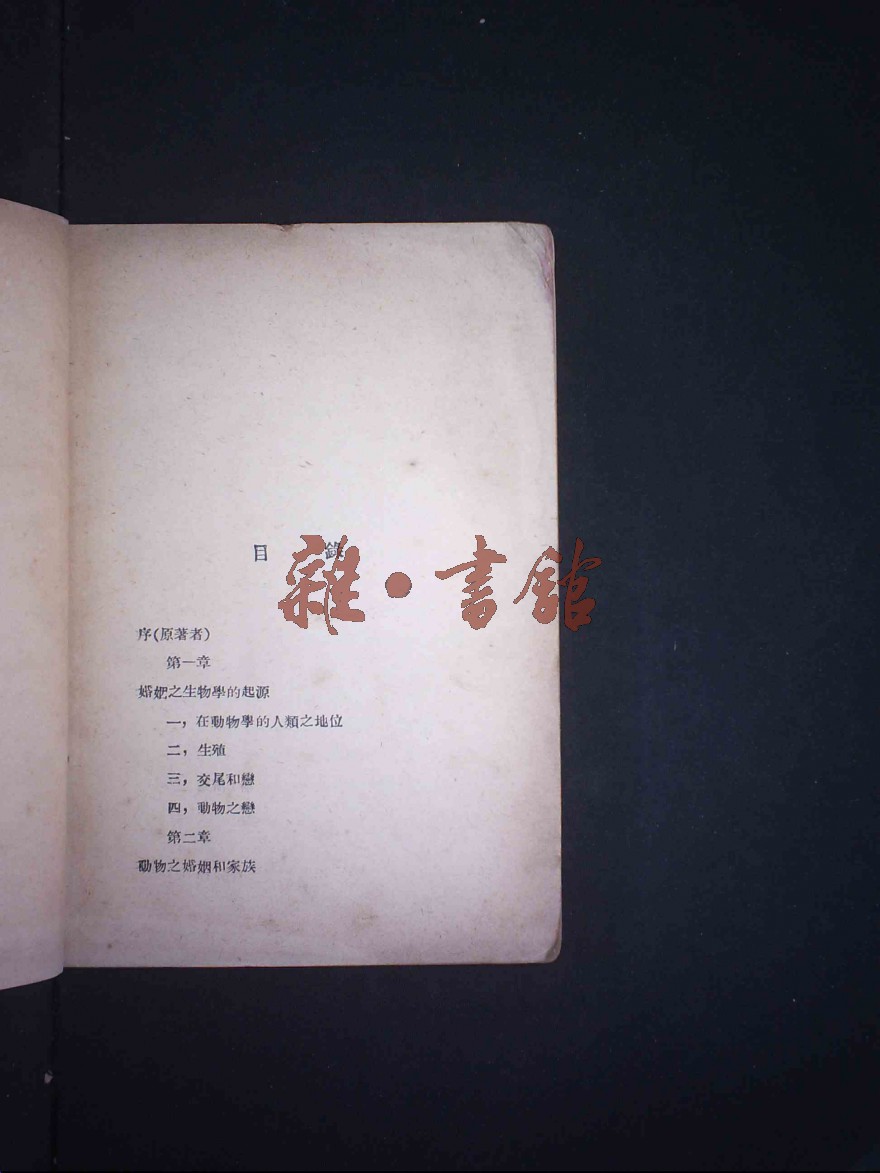 目錄
雜·書館
序(原著者)
第一章
婚姻之生物學的起源
一，在動物學的人類之地位
二，生殖
三，交尾和戀
四，動物之戀
第二章
動物之婚姻和家族